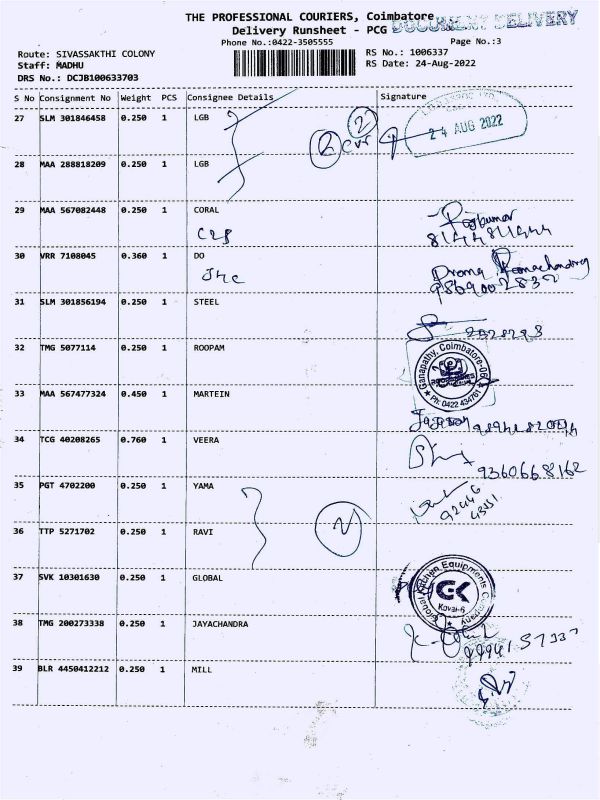 THE PROFESSIONAL COURIERS, Coimbatore
Delivery Runsheet - PCG
DOCUMENT DELIVERY
Phone No.:0422-3505555
Page No.:3
Route: SIVASSAKTHI COLONY
RS No.: 1006337
Staff: MADHU
RS Date: 24-Aug-2022
DRS No.: DCJB100633703
S No Consignment No Weight PCS Consignee Details Signature
27 SLM 301846458 0.250 1 LGB
24 AUG 2022
28 MAA 288818209 0.250 1 LGB
29 MAA 567082448 0.250 1 CORAL
30 VRR 7108045 0.360 1 DO
31 SLM 301856194 0.250 1 STEEL
32 TMG 5077114 0.250 1 ROOPAM
Ganapathy, Coimbatore-06
33 MAA 567477324 0.450 1 MARTEIN
34 TCG 40208265 0.760 1 VEERA
9360668162
35 PGT 4702200 0.250 1 YAMA
36 TTP 5271702 0.250 1 RAVI
37 SVK 10301630 0.250 1 GLOBAL
Global Kitchen Equipments Company
GK
Kovai-6
38 TMG 200273338 0.250 1 JAYACHANDRA
39 BLR 4450412212 0.250 1 MILL